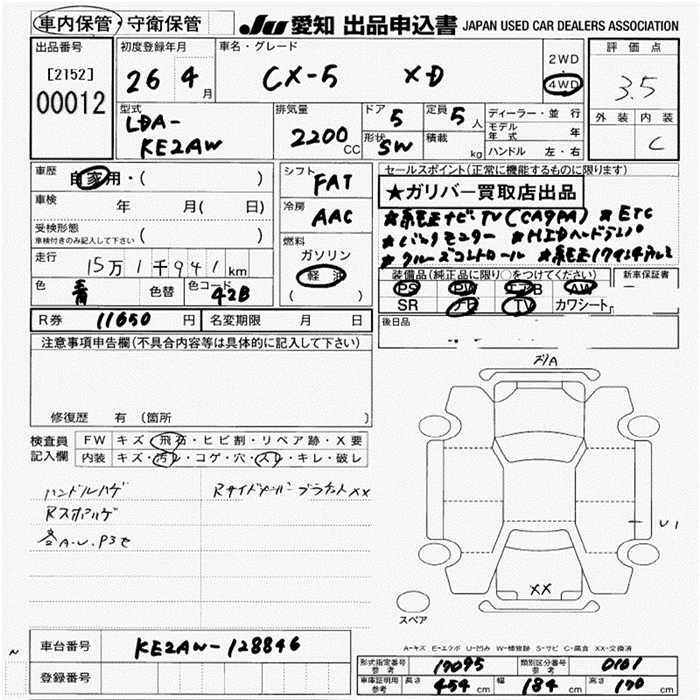 車内保管・守衛保管 JU 愛知 出品申込書 JAPAN USED CAR DEALERS ASSOCIATION
出品番号 初度登録年月 車名・グレード 2WD 評価点
[2152] 26 4月 CX-5 XD 4WD 3.5
00012
型式 排気量 ドア 5 定員 5人 ディーラー・並行 外装 内装
LDA- モデル年式 年
KE2AW 2200CC 形状 SW 積載 kg ハンドル 左・右 C
車歴 自家用・( ) シフト FAT セールスポイント(正常に機能するものに限ります)
★ガリバー買取店出品
車検 年 月( 日) 冷房 AAC ★純正ナビTV(CA9PA) ★ETC
受検形態 車検付きのみ記入して下さい ( ) ★バックモニター ★HIDヘッドランプ
燃料 ★クルーズコントロール ★純正17インチアルミ
走行 15万1千941km ガソリン
軽油 装備品(純正品に限り○をつけてください) 新車保証書
色 青 色替 色コード 42B ( ) PS PW エアB AW
SR ナビ TV カワシート
R券 11650円 名変期限 月 日 後日品
注意事項申告欄(不具合内容等は具体的に記入して下さい)
修復歴 有 (箇所 )
検査員記入欄 FW キズ・飛石・ヒビ割・リペア跡・X要
内装 キズ・汚レ・コゲ・穴・スレ・キレ・破レ
ハンドルハゲ
Rスポハゲ
A.U.P3セ
U1
XX
スペア
A-キズ E-エクボ U-凹み W-補修跡 S-サビ C-腐食 XX-交換済
車台番号 KE2AW-128846
登録番号
形式指定番号 参考 17095 類別区分番号 参考 0101
車庫証明用 参考 長さ 454cm 幅 184cm 高さ 170cm